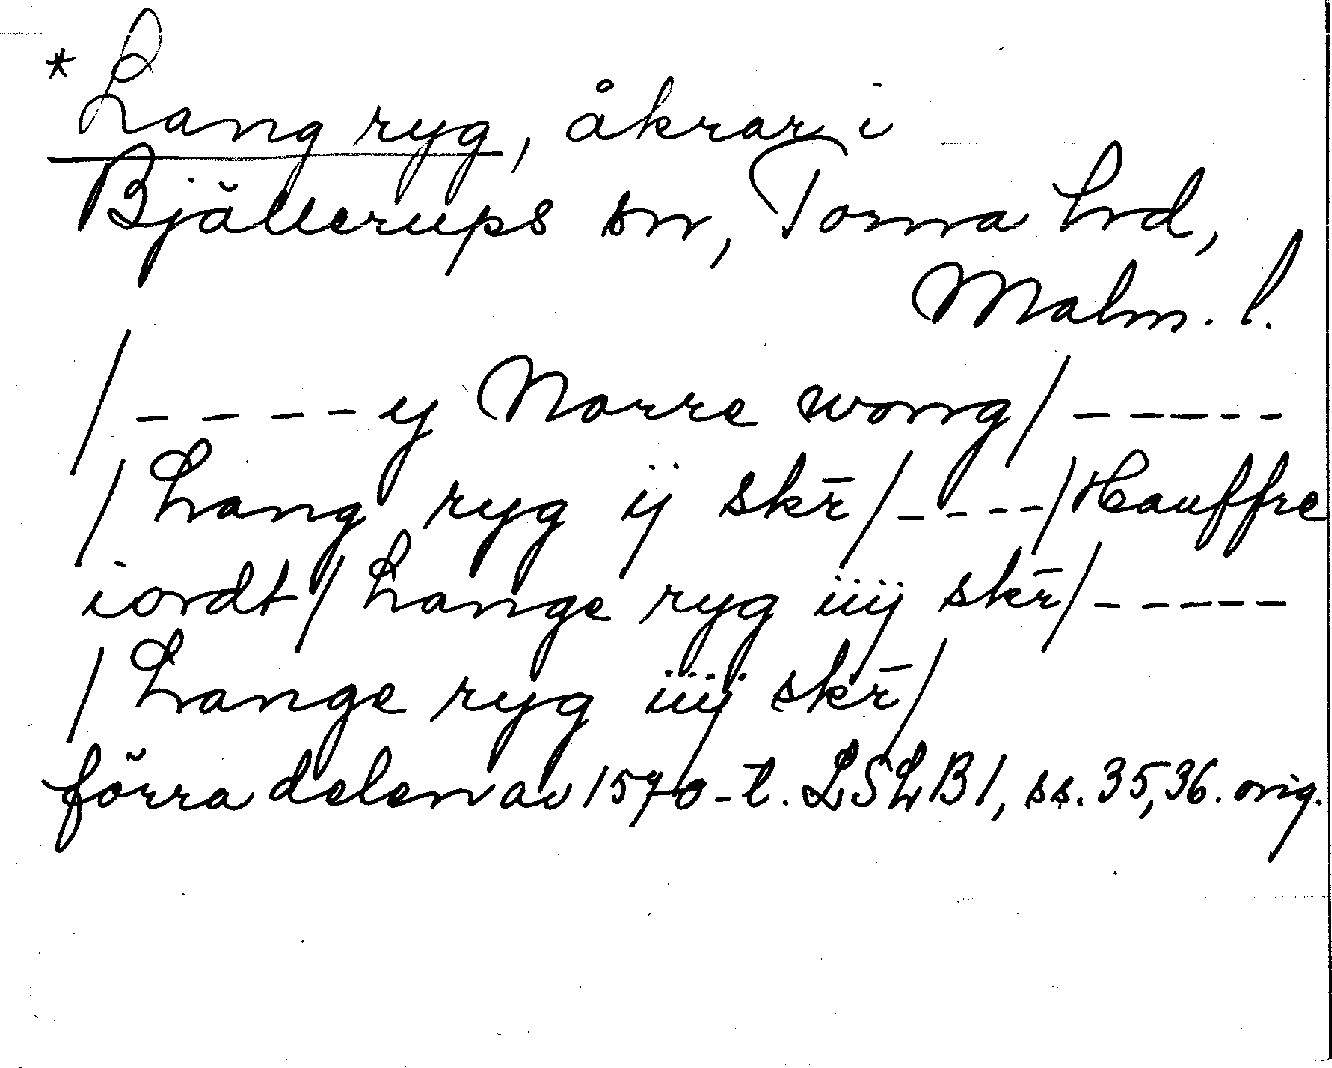 * Lang ryg, åkrar i
Bjällerups sn, Torna hd,
Malm. l.
/ - - - - y Norre wong / - - - - -
/ Lang ryg ij skr̄ / - - - - / Hauffre
iordt / Lange ryg iiij skr̄ / - - - - -
/ Lange ryg iiij skr̄ /
förra delen av 1570-t. LSLB1, ss. 35, 36. orig.